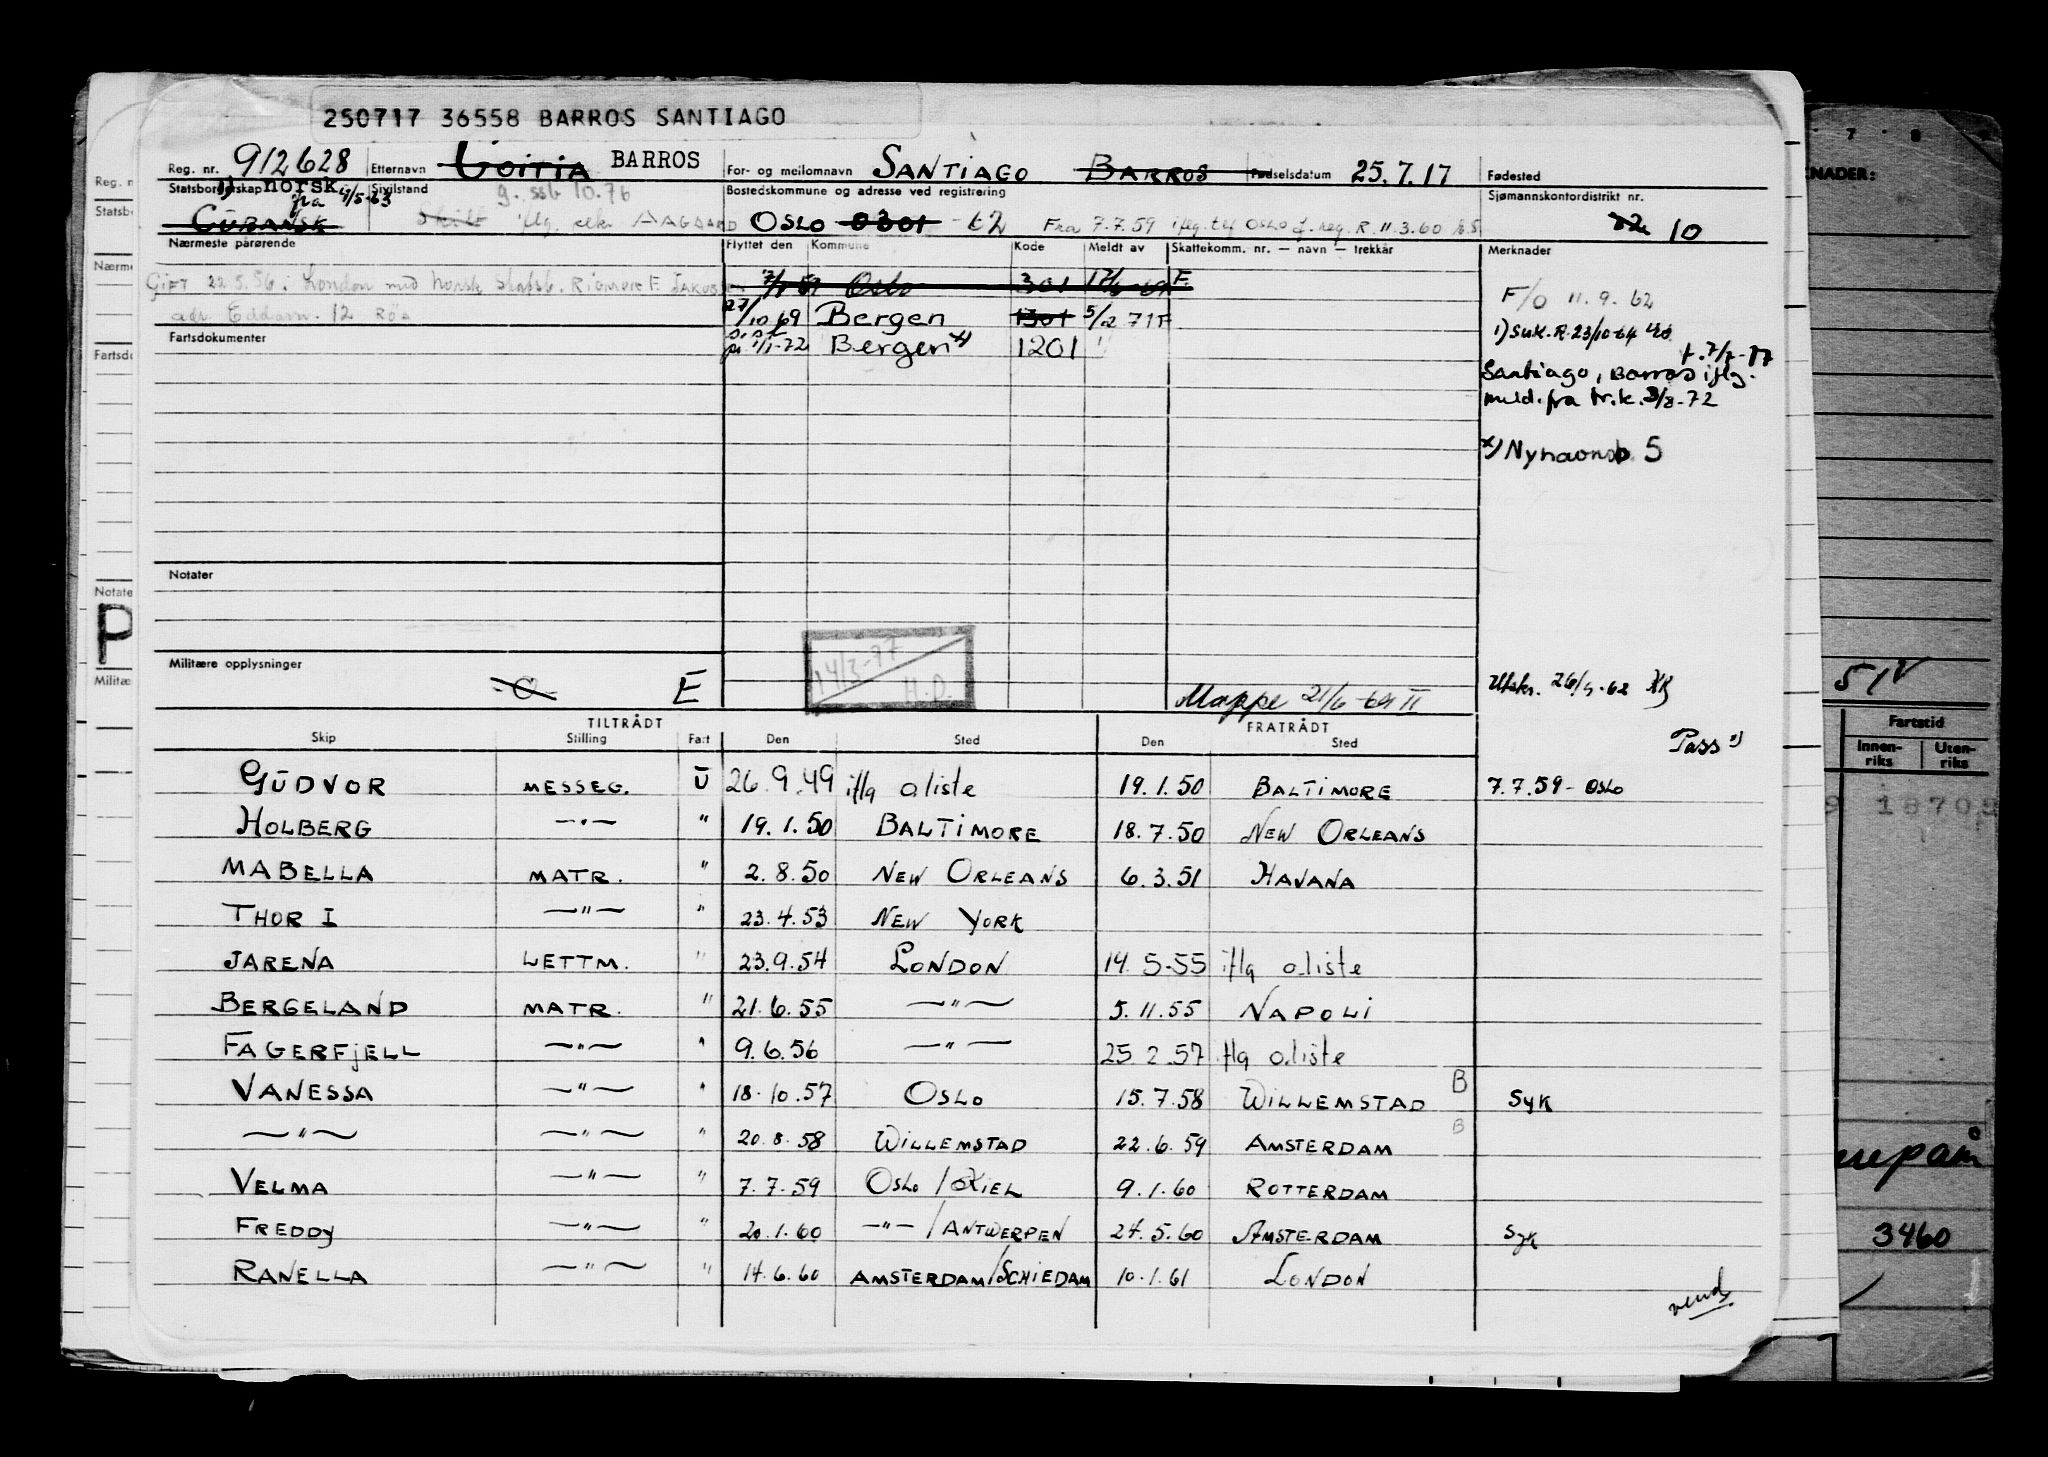 250717 36558 BARROS SANTIAGO
Reg. nr. 912628 Etternavn BARROS For- og mellomnavn SANTIAGO BARROS Fødselsdatum 25.7.17 Fødested
Statsborgerskap 1) norsk fra Sivilstand g. ssb 10.76 Bostedskommune og adresse ved registrering Sjømannskontordistrikt nr.
CUBANSK Skilt iflg. AAGAARD OSLO 0301 62 Fra 7.7.59 iflg. tlf OSLO f. reg. R. 11.3.60 10
Nærmeste pårørende Flyttet den Kommune Kode Meldt av Skattekomm. nr. — navn — trekkår Merknader
Gift 22.5.56 i London med norsk statsb. RIGMOR E JAKOBSEN Oslo 301 F.
F/O 11.9.62
adr. 12 Røa 27/10 69 Bergen 1301 5/2 71 F
1) Suk. R. 23/10-64
Fartsdokumenter 1/1-72 Bergen x) 1201 "
t. 7/7-77
Santiago, Barros iflg.
meld. fra tr.k. 3/8-72
x) Nyhavnsb. 5
Notater
14/3-77
H.P.
Militære opplysninger
E
Utskr. 26/9-62
Mappe 21/6-69 II
TILTRÅDT FRATRÅDT
Skip Stilling Fart Den Sted Den Sted Pass 1)
GUDVOR MESSEG. U 26.9.49 iflg a.liste 19.1.50 BALTIMORE 7.7.59 - OSLO
HOLBERG —"— " 19.1.50 BALTIMORE 18.7.50 NEW ORLEANS
MABELLA MATR. " 2.8.50 NEW ORLEANS 6.3.51 HAVANA
THOR I —"— " 23.4.53 NEW YORK
JARENA LETTM. " 23.9.54 LONDON 14.5-55 iflg a.liste
BERGELAND MATR. " 21.6.55 —"— 5.11.55 NAPOLI
FAGERFJELL —"— " 9.6.56 —"— 25.2.57 iflg a.liste
VANESSA —"— " 18.10.57 OSLO 15.7.58 WILLEMSTAD B SYK
—"— —"— " 20.8.58 WILLEMSTAD 22.6.59 AMSTERDAM B
VELMA —"— " 7.7.59 OSLO / KIEL 9.1.60 ROTTERDAM
FREDDY —"— " 20.1.60 —"— / ANTWERPEN 24.5.60 AMSTERDAM SYK
RANELLA —"— " 14.6.60 AMSTERDAM/SCHIEDAM 10.1.61 LONDON
vend
Reg. n
Statsb
Nærme
Fartsdo
Notate
P
Militæ
7 8
KNADER:
51
Fartstid
Innen-riks Uten-riks
18705
3460